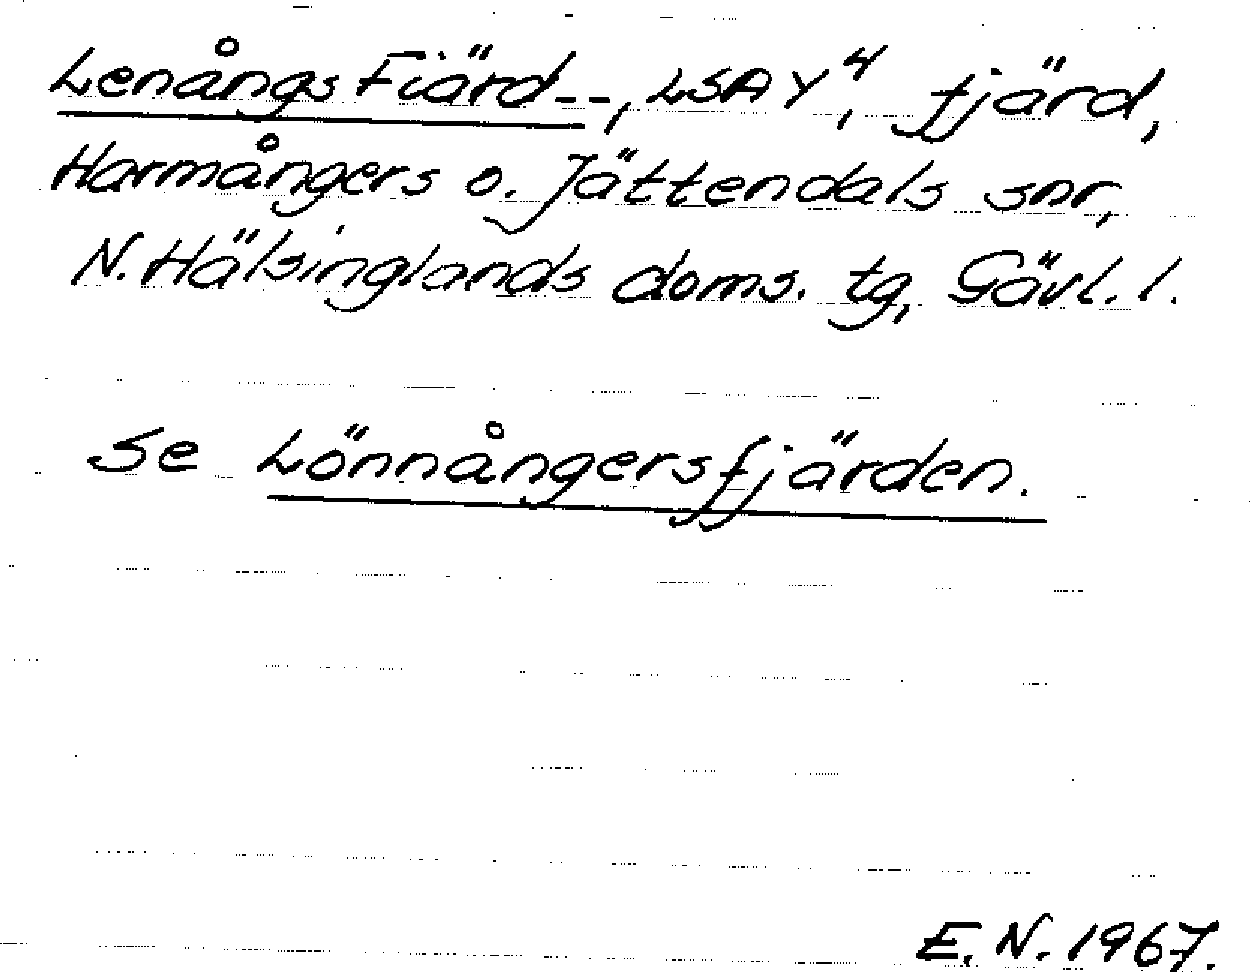 Lenångs Fiärd--, LSA Y⁴, fjärd,
Harmångers o. Jättendals snr,
N. Hälsinglands doms. tg, Gävl. l.
Se Lönnångersfjärden.
E. N. 1967.